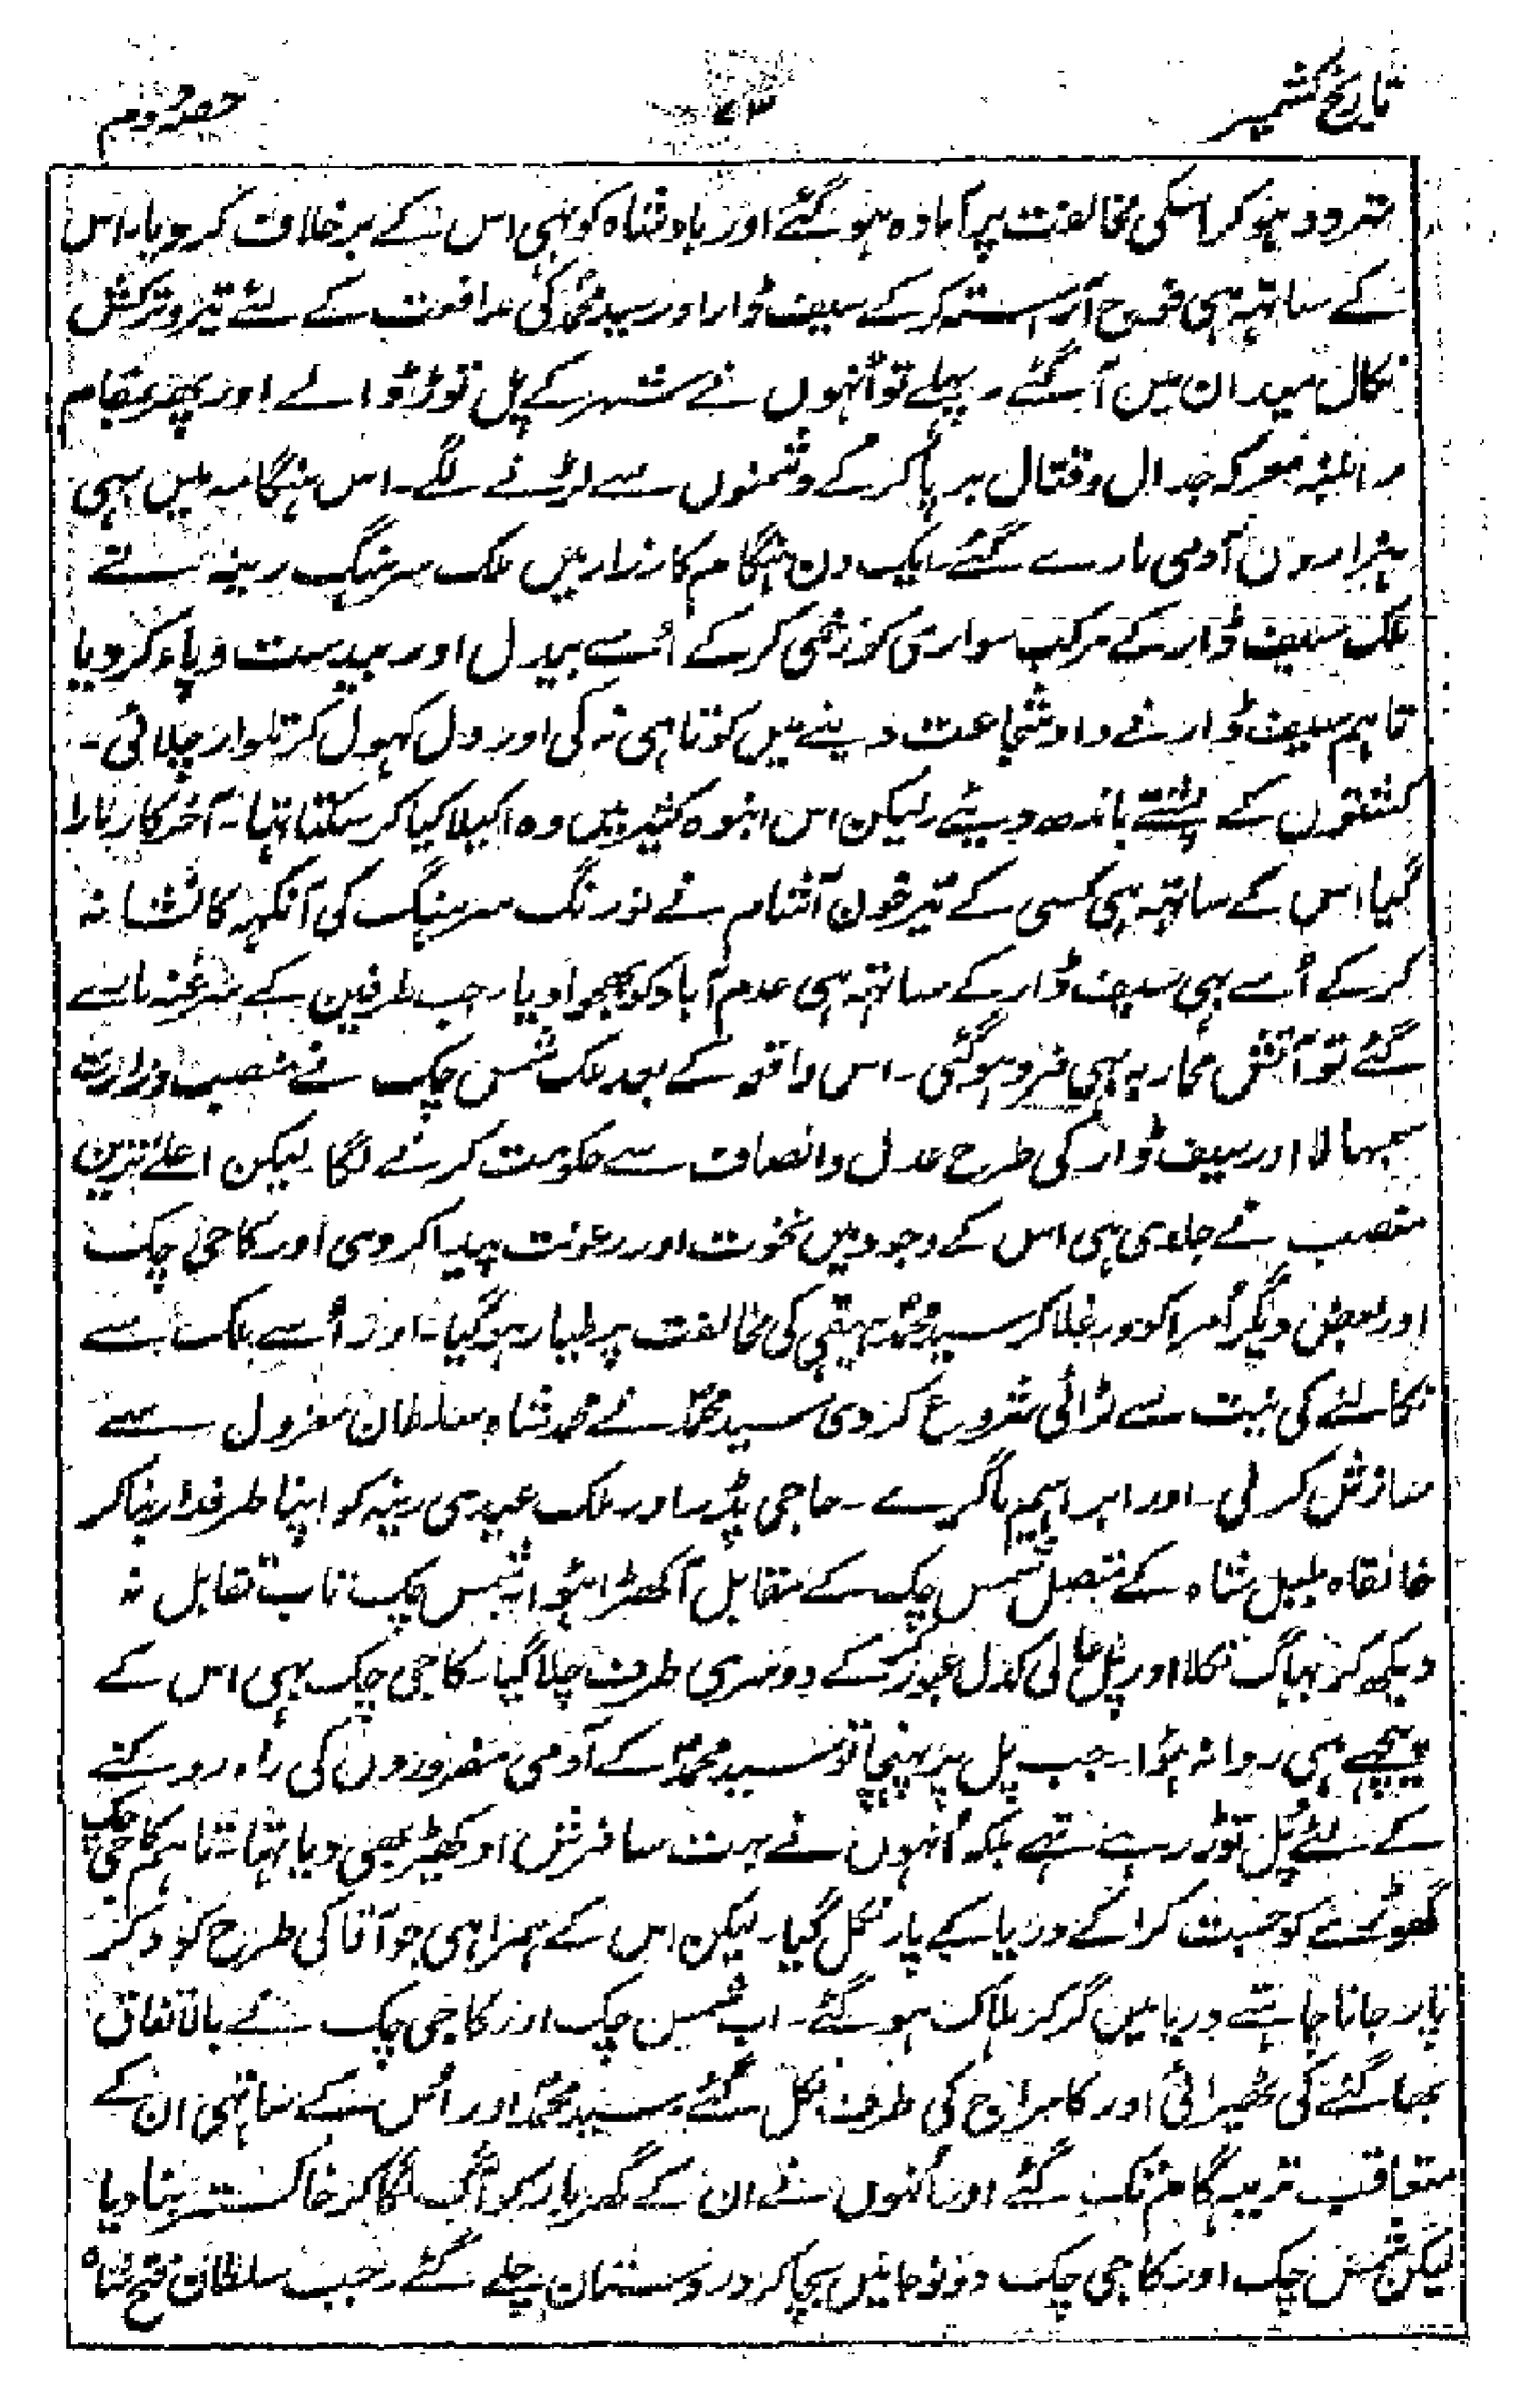 تاریخ کشمیر ۷۳ حصہ دوم
متردد ہو کر اسکی مخالفت پر آمادہ ہو گئے اور بادشاہ کو بہی اس کے برخلاف کر دیا۔ اس
کے ساتہہ ہی فوج آراستہ کر کے سیف ڈار اور سید محمدؐ کی مدافعت کے لئے تیر و ترکش
نکال میدان میں آ گئے۔ پہلے تو اُنہوں نے شہر کے پل توڑ ڈالے اور پھر بمقام
معرکہ جدال و قتال برپا کر کے دشمنوں سے لڑنے لگے۔ اس ہنگامہ میں بہی
ہزاروں آدمی مارے گئے۔ ایک دن ہنگام کارزار میں ملک سرہنگ رینہ نے
ملک سیف ڈار کے مرکب سواری کو زخمی کر کے اُسے بیدل اور بیدست و پاء کر دیا
تاہم سیف ڈار نے داد شجاعت دینے میں کوتاہی نہ کی اور دل کہول کر تلوار چلائی۔
کشتوں کے پشتے باندھ دیئے۔ لیکن اس انبوہ کثیر میں وہ اکیلا کیا کر سکتا تہا۔ آخر کار مارا
گیا اس کے ساتہہ ہی کسی کے تیر خون آشام نے نورنگ سرہنگ کی آنکہہ کا نشانہ
کر کے اُسے بہی سیف ڈار کے ساتہہ ہی عدم آباد کو بھجوا دیا۔ جب طرفین کے سرغنہ مارے
گئے تو آتش محاربہ بہی فرو ہو گئی۔ اس واقعہ کے بعد ملک شمس چک نے منصب وزارت
سمبہالا اور سیف ڈار کی طرح عدل و انصاف سے حکومت کرنے لگا۔ لیکن اعلےٰ ترین
منصب نے جلدی ہی اس کے وجود میں نخوت اور رعونت پیدا کر دی اور کاجی چک
اور بعض دیگر اُمرا کو ورغلا کر سید محمدؐ بیہقی کی مخالفت پر طیار ہو گیا۔ اور اُسے ملک سے
نکالنے کی نیت سے لڑائی شروع کر دی سید محمدؐ نے محمد شاہ سلطان معزول سے
سازش کر لی۔ اور ابراہیم ماگرے۔ حاجی پڈر اور ملک عیدی رینہ کو اپنا طرفدار بنا کر
خانقاہ بلبل شاہ کے متصل شمس چک کے مقابل آ کھڑا ہوا۔ شمس چک تاب تقابل نہ
دیکھ کر بہاگ نکلا اور پل عالی کدل عبور کر کے دوسری طرف چلا گیا۔ کاجی چک بہی اس کے
پیچھے ہی روانہ ہوا۔ جب پل پر پہنچا تو سید محمدؐ کے آدمی مفروروں کی راہ روکنے
کے لئے پُل توڑ رہے تہے بلکہ اُنہوں نے بہت سا فرش اوکھیڑ بھی دیا تہا۔ تاہم کاجی چک
گھوڑے کو جست کرا کے دریا کے پار نکل گیا۔ لیکن اس کے ہمراہی جو آقا کی طرح کود کر
پار جانا چاہتے دریا میں گر کر ہلاک ہو گئے۔ اب شمس چک اور کاجی چک نے بالاتفاق
بھاگنے کی ٹھیرائی اور کامراج کی طرف نکل گئے۔ سید محمدؐ اور اُس کے ساتہی ان کے
متعاقب تریہگام تک گئے اور اُنہوں نے ان کے گھر بار کو آگ لگا کر خاکستر بنا دیا
لیکن شمس چک اور کاجی چک دونو جانیں بچا کر دروستان چلے گئے۔ جب سلطان فتح شاہ